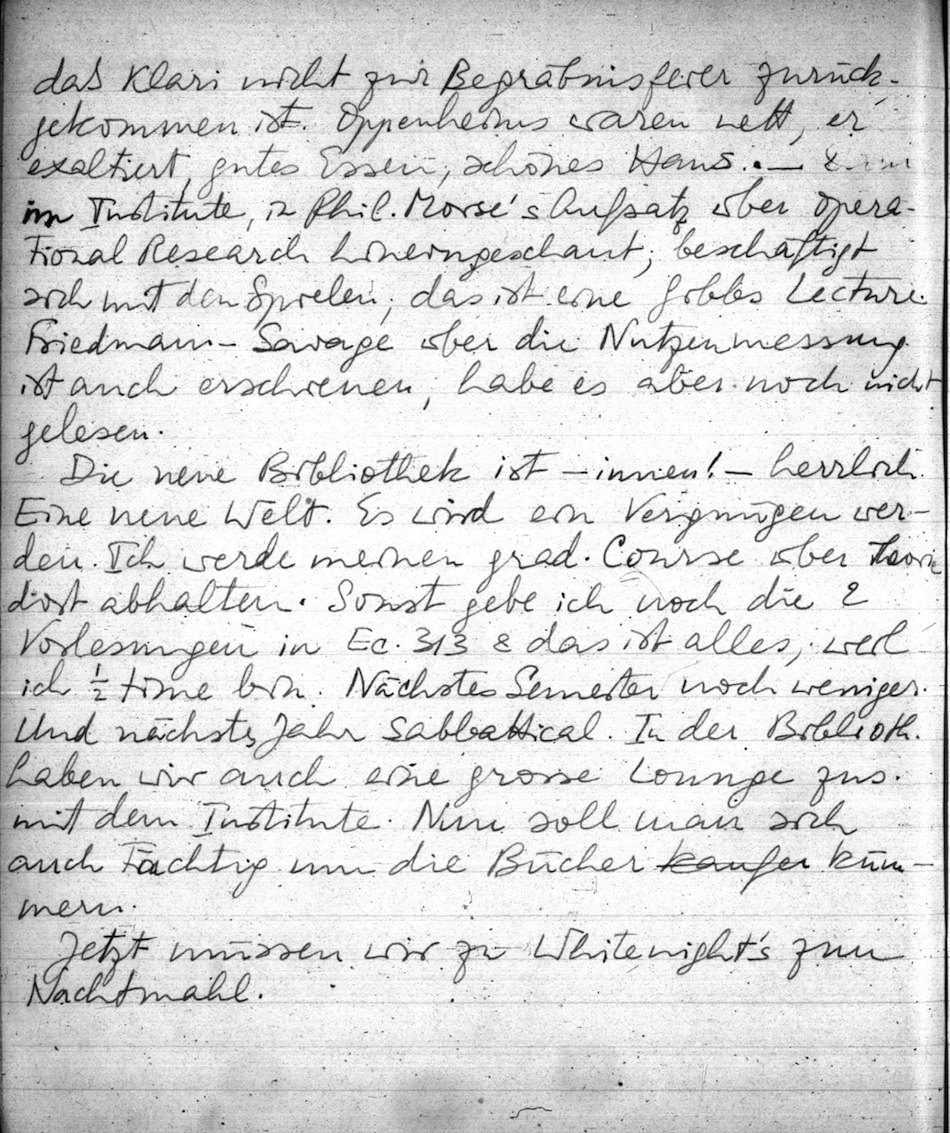 daß Klari nicht zur Begräbnisfeier zurück-
gekommen ist. Oppenheims waren nett, er
exaltiert, gutes Essen, schönes Haus. –
im Institute, in Phil. Morse's Aufsatz über Opera-
tional Research hineingeschaut; beschäftigt
sich mit den Spielen; das ist eine Gibbs Lecture.
Friedman – Savage über die Nutzenmessung
ist auch erschienen, habe es aber noch nicht
gelesen.
Die neue Bibliothek ist – innen! – herrlich.
Eine neue Welt. Es wird ein Vergnügen wer-
den. Ich werde meinen grad. Course über
dort abhalten. Sonst gebe ich noch die 2
Vorlesungen in Ec. 313 & das ist alles, weil
ich ½ time bin. Nächstes Semester noch weniger.
Und nächstes Jahr Sabbatical. In der Biblioth.
haben wir auch eine grosse Lounge zus.
mit dem Institute. Nun soll man sich
auch tüchtig um die Bücher kaufen küm-
mern.
Jetzt müssen wir zu Whitenight's zum
Nachtmahl.